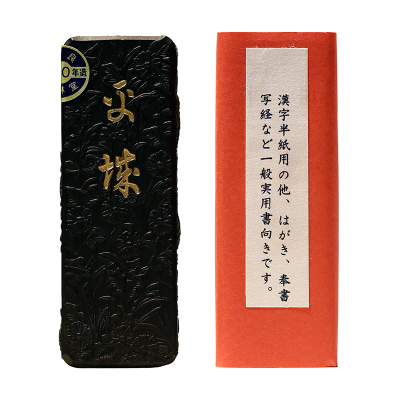 平城
漢字半紙用の他、はがき、奉書
写経など一般実用書向きです。